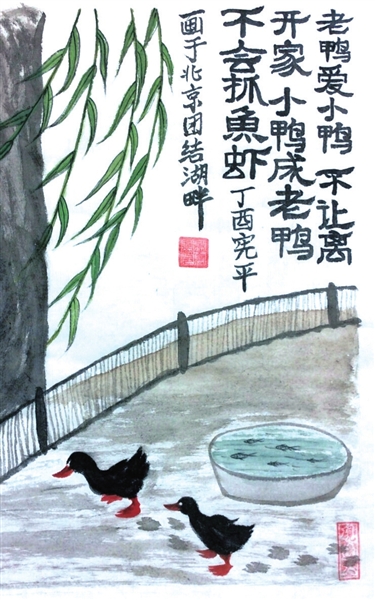 老鸭爱小鸭 不让离
开家 小鸭成老鸭
不会抓魚虾 丁酉宪平
画于北京团结湖畔